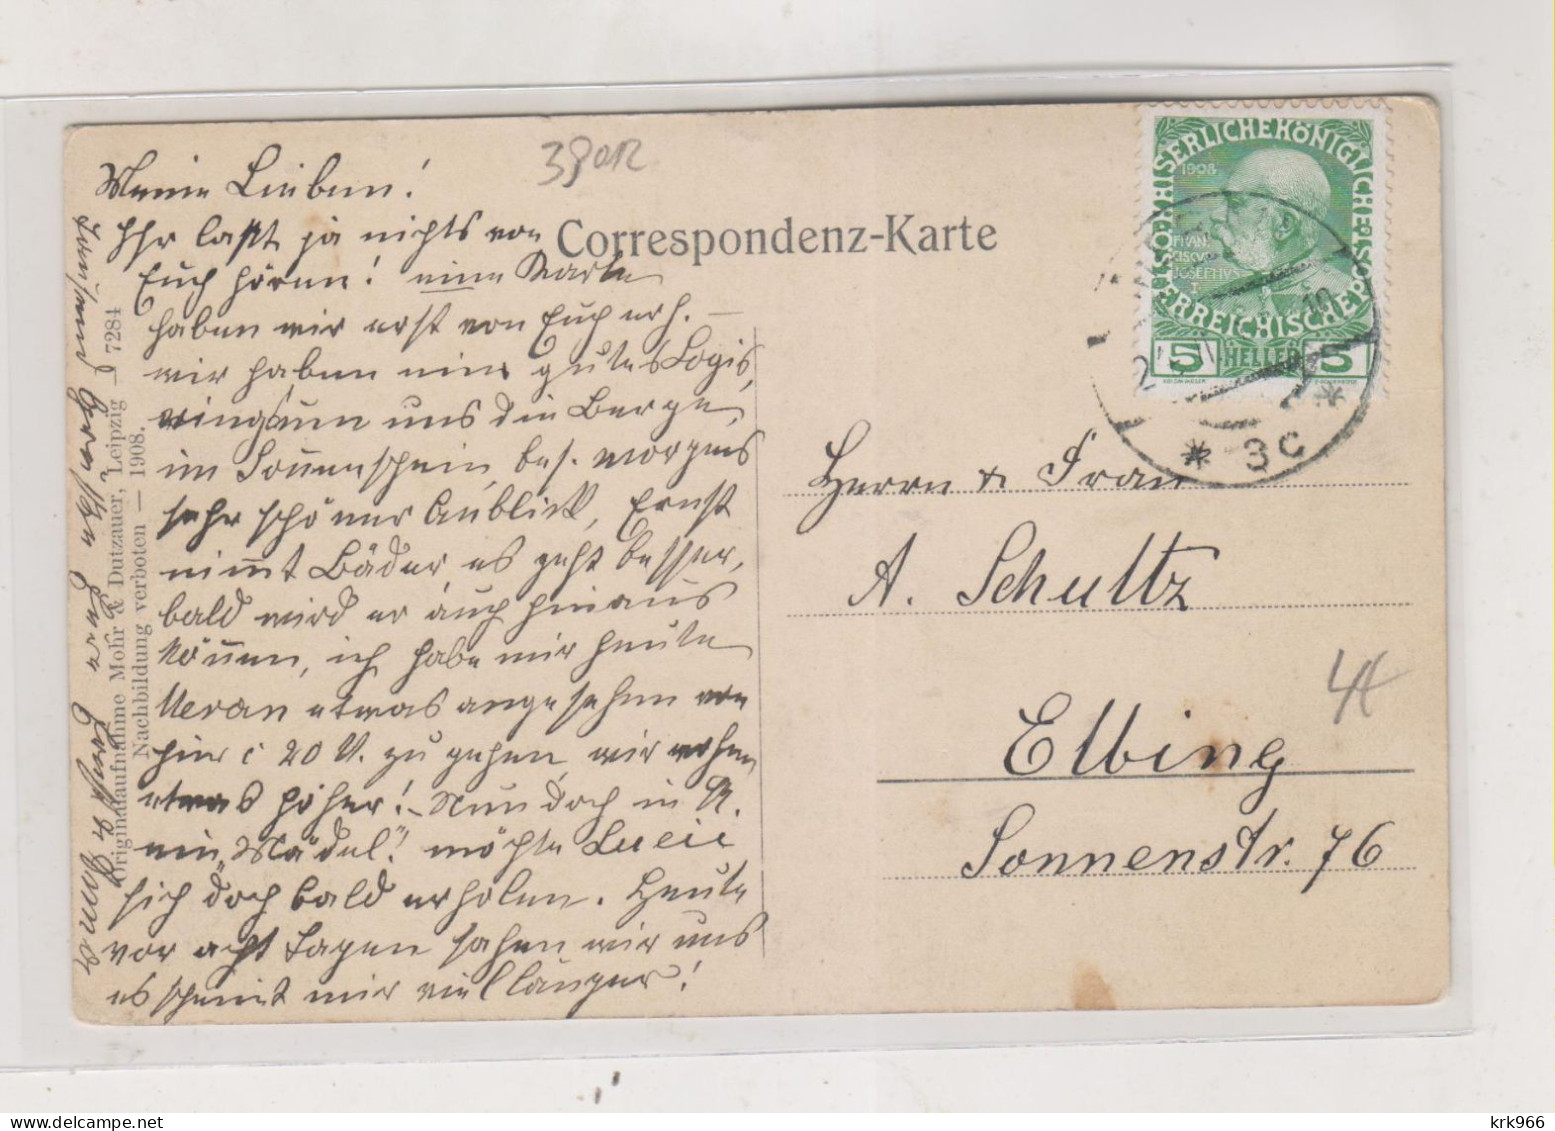 380R
Meine Lieben!
Ihr laßt ja nichts von
Euch hören! eine Karte
haben wir erst von Euch erh. –
wir haben ein gutes Logis,
ringsum uns die Berge,
im Sonnenschein, bes. morgens
sehr schöner Anblick, Ernst
nimmt Bäder, es geht besser,
bald wird er auch hinaus
können, ich habe mir heute
Meran etwas angesehen von
hier c 20 M. zu gehen, wir wohnen
etwas höher! – Nun doch in
ein „Mädel"! möchte Lucie
sich doch bald erholen. Heute
vor acht Tagen sahen wir uns
es scheint mir viel länger!
Tausend Grüße Eure
Originalaufnahme Mohr & Dutzauer, Leipzig 7284
Nachbildung verboten — 1908.
Correspondenz-Karte
KAISERLICHE KÖNIGLICHE ÖSTERREICHISCHE POST
1908
FRAN
CISCVS
JOSEPHVS
I
5 HELLER 5
10
* 3c *
Herrn & Frau
A. Schultz
Elbing
Sonnenstr. 76
krk966